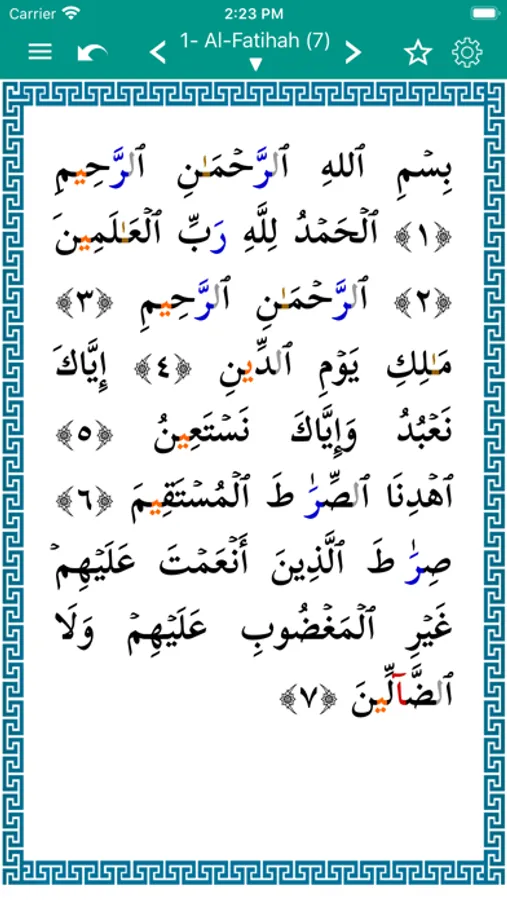 Carrier 2:23 PM
1- Al-Fatihah (7)
بِسۡمِ ٱللهِ ٱلرَّحۡمَـٰنِ ٱلرَّحِيمِ
﴿١﴾ ٱلۡحَمۡدُ لِلَّهِ رَبِّ ٱلۡعَـٰلَمِينَ
﴿٢﴾ ٱلرَّحۡمَـٰنِ ٱلرَّحِيمِ ﴿٣﴾
مَـٰلِكِ يَوۡمِ ٱلدِّينِ ﴿٤﴾ إِيَّاكَ
نَعۡبُدُ وَإِيَّاكَ نَسۡتَعِينُ ﴿٥﴾
ٱهۡدِنَا ٱلصِّرَٰطَ ٱلۡمُسۡتَقِيمَ ﴿٦﴾
صِرَٰطَ ٱلَّذِينَ أَنۡعَمۡتَ عَلَيۡهِمۡ
غَيۡرِ ٱلۡمَغۡضُوبِ عَلَيۡهِمۡ وَلَا
ٱلضَّآلِّينَ ﴿٧﴾